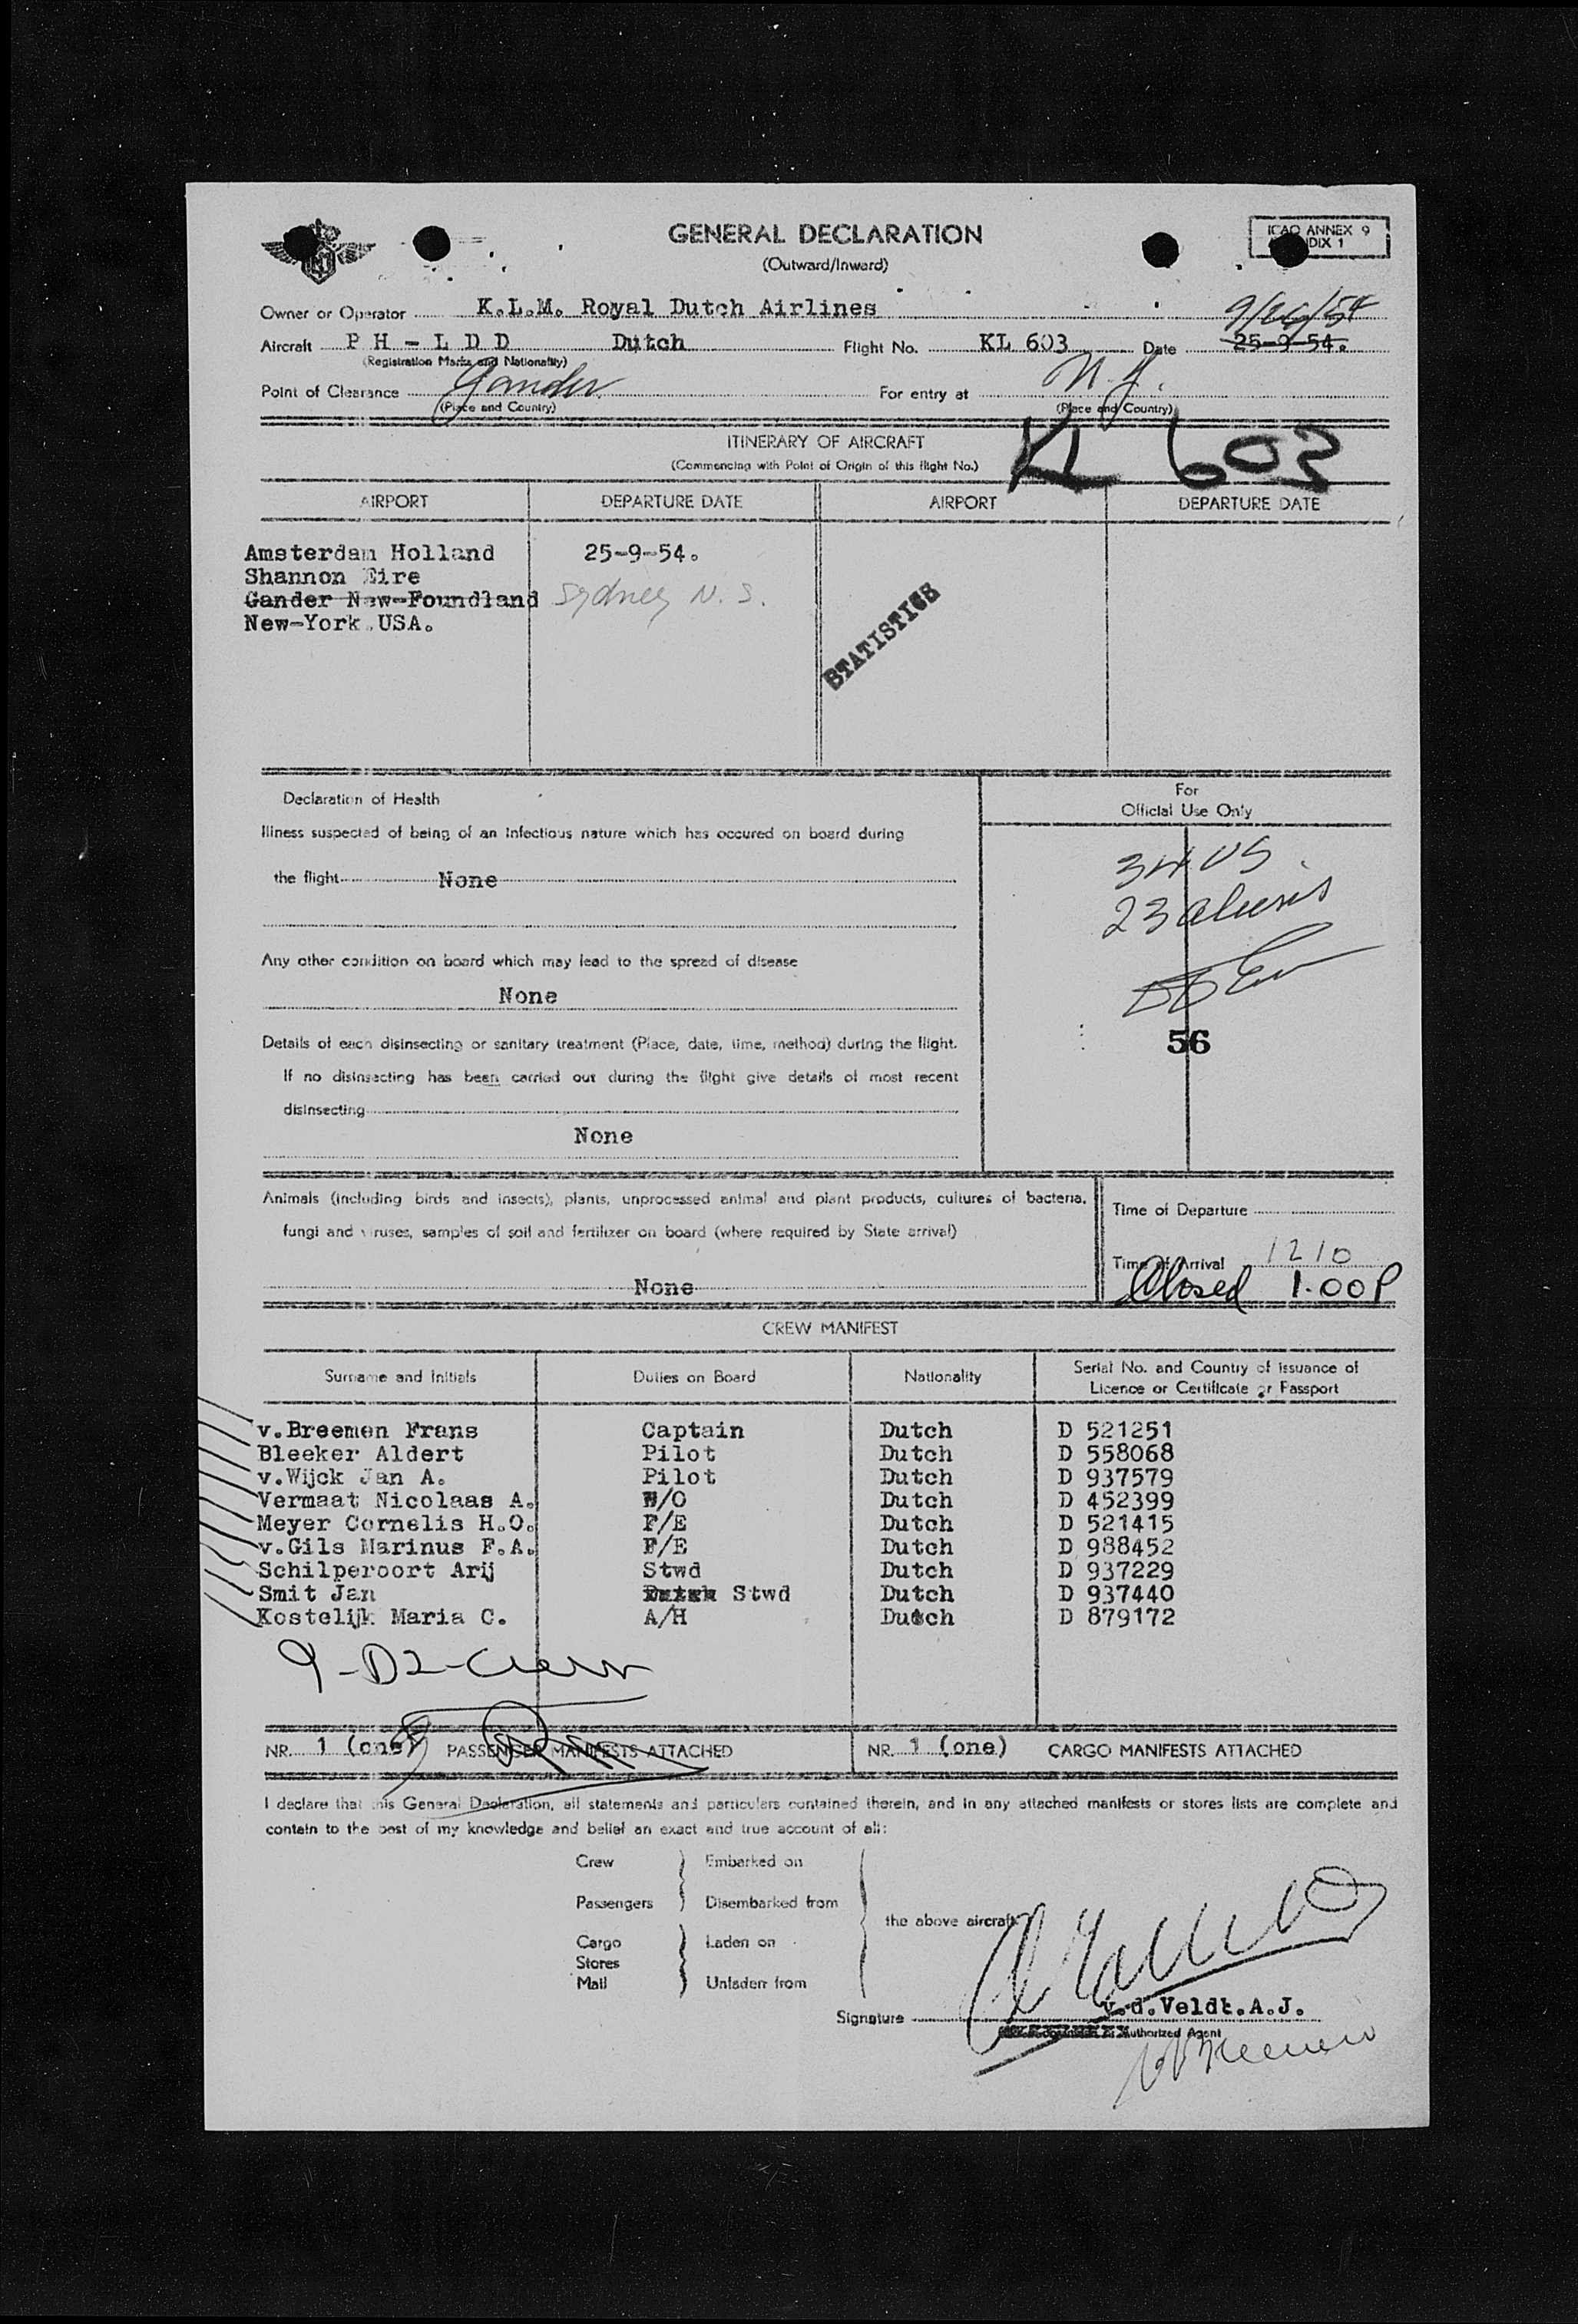 GENERAL DECLARATION
(Outward/Inward)
ICAO ANNEX 9
DIX 1
Owner or Operator K.L.M. Royal Dutch Airlines
9/26/54
Aircraft P H - L D D Dutch Flight No. KL 603 Date 25-9-54.
(Registration Marks and Nationality)
Point of Clearance Gander For entry at N.Y.
(Place and Country) (Place and Country)
ITINERARY OF AIRCRAFT
(Commencing with Point of Origin of this flight No.)
KL 603
AIRPORT DEPARTURE DATE AIRPORT DEPARTURE DATE
Amsterdam Holland 25-9-54.
Shannon Eire
Gander New-Foundland Sydney N.S.
New-York USA.
STATISTICS
Declaration of Health
For
Official Use Only
Illness suspected of being of an infectious nature which has occured on board during
the flight None
34 US
23 aliens
Any other condition on board which may lead to the spread of disease
None
56
Details of each disinsecting or sanitary treatment (Place, date, time, method) during the flight.
If no disinsecting has been carried out during the flight give details of most recent
disinsecting
None
Animals (including birds and insects), plants, unprocessed animal and plant products, cultures of bacteria,
fungi and viruses, samples of soil and fertilizer on board (where required by State arrival)
None
Time of Departure
Time of Arrival 1210
Closed 1.00P
CREW MANIFEST
Surname and Initials Duties on Board Nationality Serial No. and Country of Issuance of
Licence or Certificate or Passport
v.Breemen Frans Captain Dutch D 521251
Bleeker Aldert Pilot Dutch D 558068
v.Wijck Jan A. Pilot Dutch D 937579
Vermaat Nicolaas A. W/O Dutch D 452399
Meyer Cornelis H.O. F/E Dutch D 521415
v.Gils Marinus F.A. F/E Dutch D 988452
Schilperoort Arij Stwd Dutch D 937229
Smit Jan Stwd Dutch D 937440
Kostelijk Maria C. A/H Dutch D 879172
9-D2-Crew
NR. 1 (one) PASSENGER MANIFESTS ATTACHED NR. 1 (one) CARGO MANIFESTS ATTACHED
I declare that this General Declaration, all statements and particulars contained therein, and in any attached manifests or stores lists are complete and
contain to the best of my knowledge and belief an exact and true account of all:
Crew Embarked on
Passengers Disembarked from
the above aircraft
Cargo Laden on
Stores
Mail Unladen from
Signature v.d.Veldt.A.J.
Authorized Agent